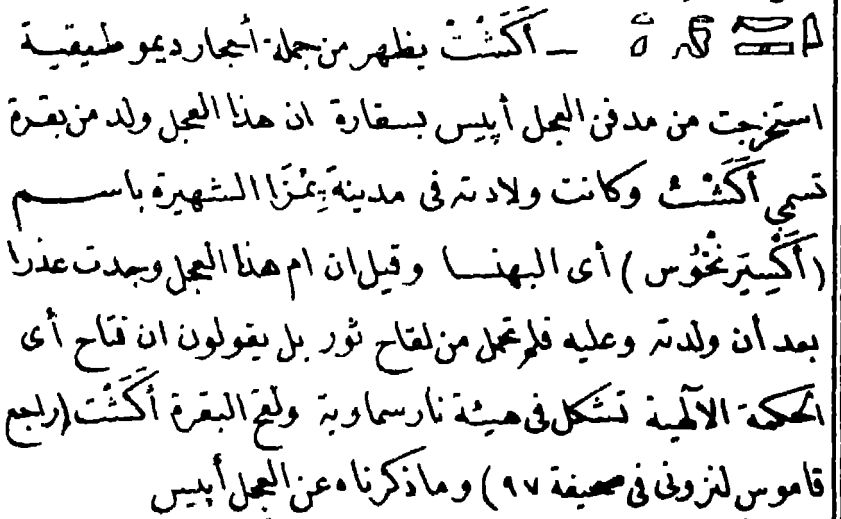 – أَكَشْتْ يظهر من جملة أحجار ديموطيقية
استخرجت من مدفن العجل أپيس بسقارة ان هذا العجل ولد من بقرة
تسمي أَكَشْتْ وكانت ولادته فى مدينة پِمْزَا الشهيرة باسم
(أُكْسِيَرِنْخُوس) أى البهنسا وقيل ان ام هذا العجل وجدت عذرا
بعد أن ولدته وعليه فلم تحمل من لقاح ثور بل يقولون ان فتاح أى
الحكمة الآلهية تشكل فى هيئة نار سماوية ولقح البقرة أَكَشْت (راجع
قاموس لنزونى فى صحيفة ٩٧) وماذكرناه عن العجل أپيس